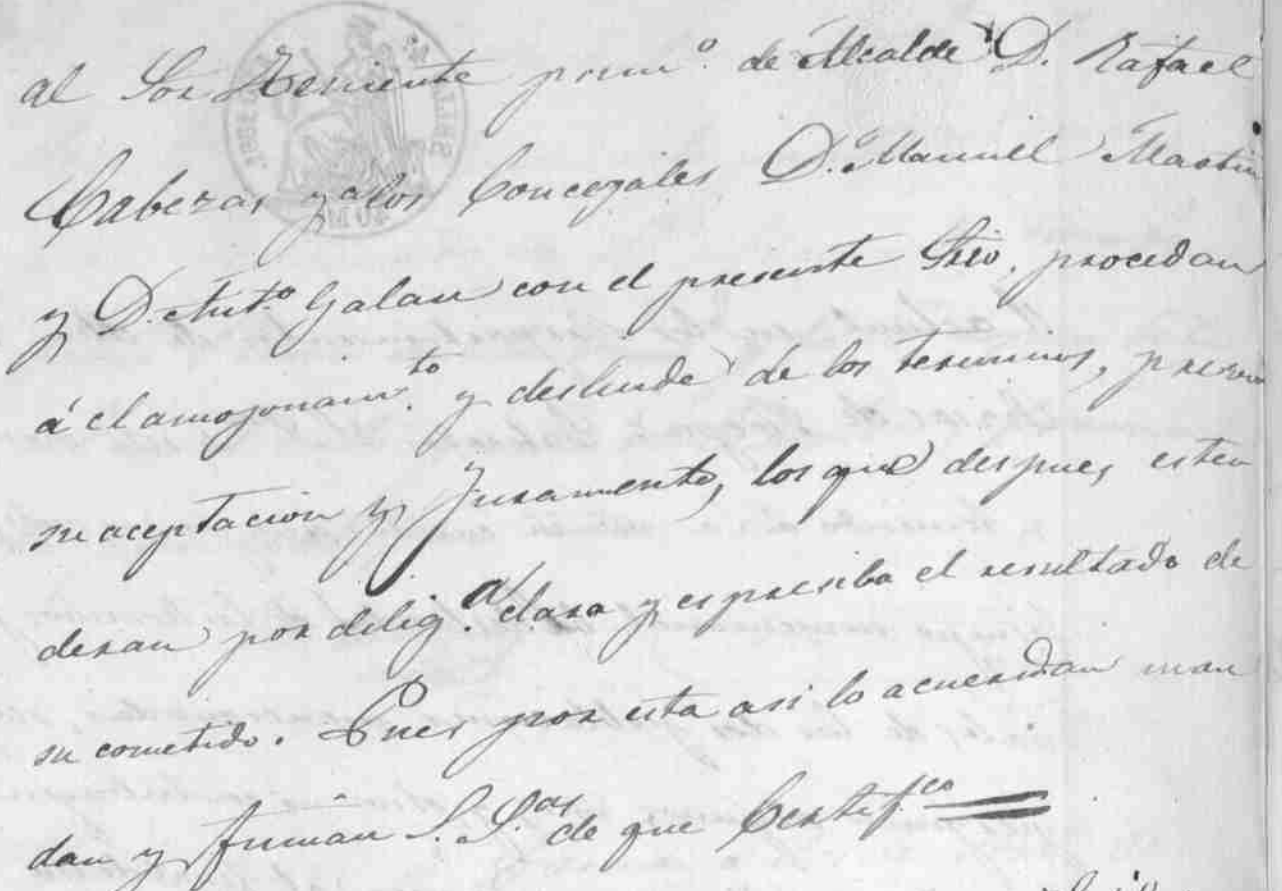 al Sor Teniente prim.º de Alcalde D. Rafael
Cabezas y a los Concegales D.º Manuel Martin
y D. Ant.º Galan con el presente Srio, procedan
á el amojonam.to y deslinde de los terminos, previa
su aceptacion y Juramento, los que despues esten
deran por dilig.a clara y espresiba el resultado de
su cometido. Pues por esta asi lo acuerdan man
dan y firman S. S.as de que Certif.co